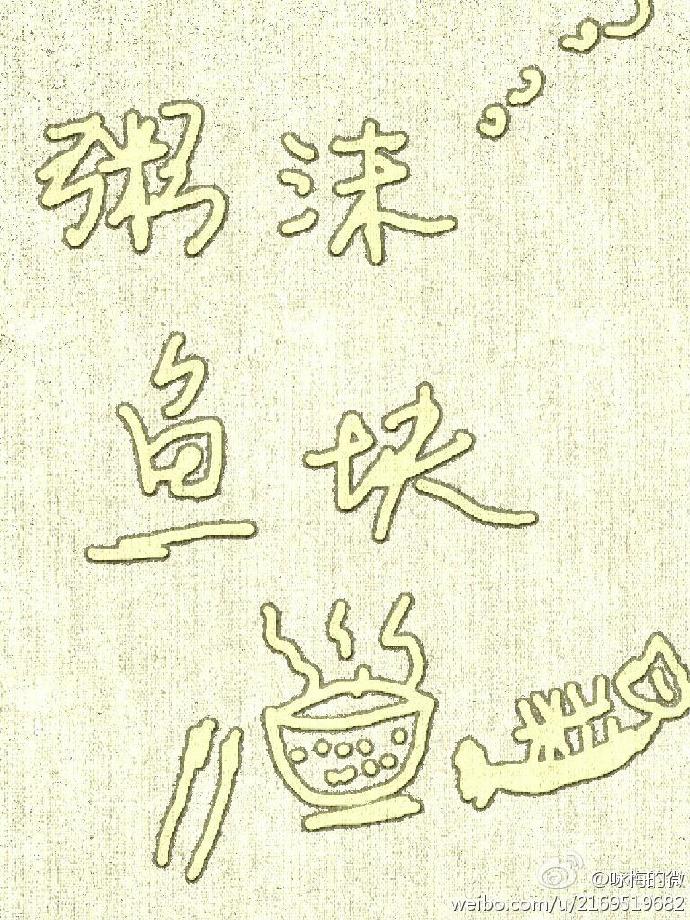 粥沫
鱼块
@咏梅的微
weibo.com/u/2169519682